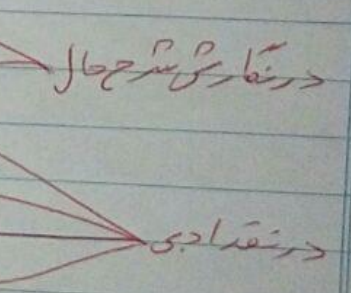 در نگارش شرح حال
در نقد ادبی